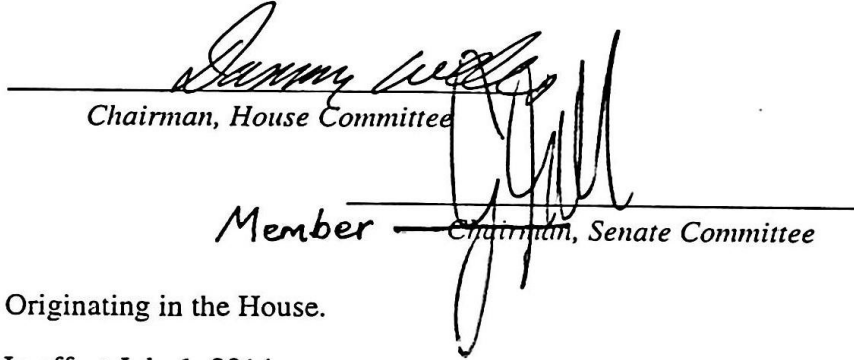 Danny Wells
Chairman, House Committee
Member Chairman, Senate Committee
Originating in the House.